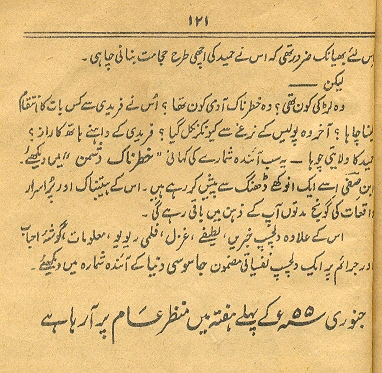 ۱۲۱
اس لئے بھیانک ضرور تھی کہ اس نے حمید کی اچھی طرح حجامت بنانی چاہی۔
لیکن ——
وہ لڑکی کون تھی؟ وہ خطرناک آدمی کون تھا؟ اُس نے فریدی سے کس بات کا انتقام
لینا چاہا؟ آخر وہ پولیس کے نرغے سے کیونکر نکل گیا؟ فریدی کے داہنے ہاتھ کا راز؟
حمید کا ولایتی چوہا۔ یہ سب آئندہ شمارے کی کہانی "خطرناک دشمن" میں دیکھئے۔
ابن صفی اسے ایک انوکھے ڈھنگ سے پیش کر رہے ہیں۔ اس کے ہیبتناک اور پُراسرار
واقعات کی گونج مدتوں آپ کے ذہن میں باقی رہے گی۔
اس کے علاوہ دلچسپ خبریں، لطیفے، غزل، فلمی ریویو، معلومات، گوشۂ احباب
اور جرائم پر ایک دلچسپ نفسیاتی مضمون جاسوسی دنیا کے آئندہ شمارہ میں دیکھئے۔
جنوری ۵۵ء کے پہلے ہفتہ میں منظر عام پر آرہا ہے